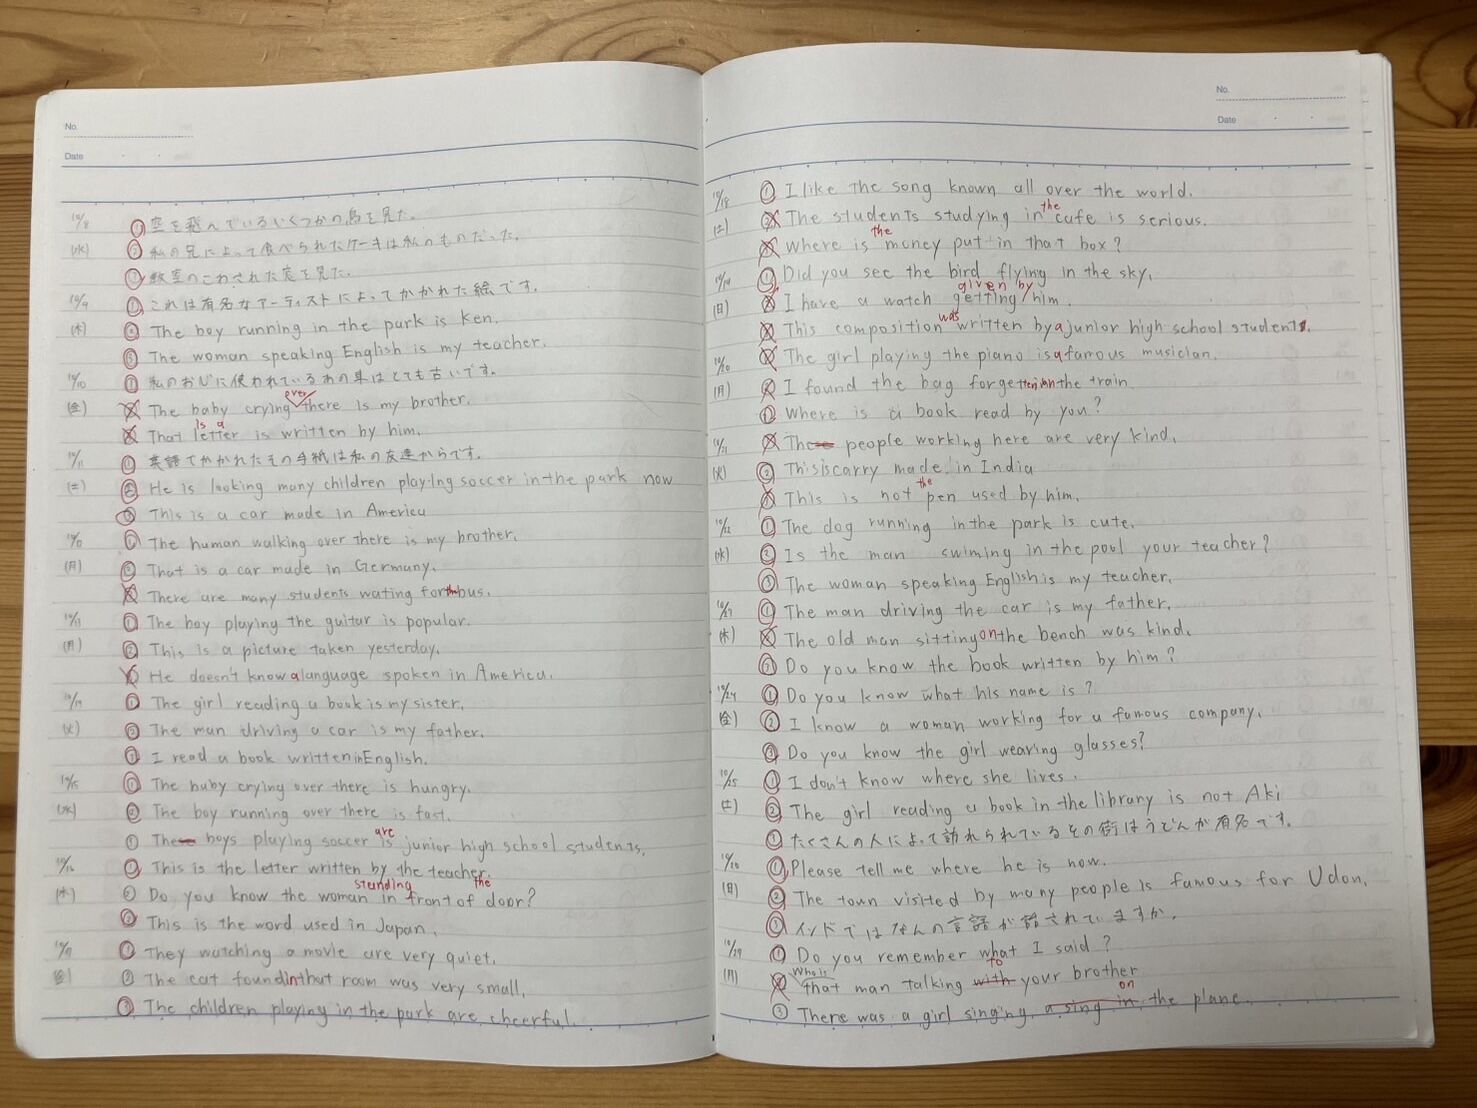 No.
Date
10/8 ① 空を飛んでいるいくつかの鳥を見た。
(水) ② 私の兄によって食べられたケーキは私のものだった。
③ 教室のこわされた窓を見た。
10/9 ① これは有名なアーティストによってかかれた絵です。
(木) ② The boy running in the park is Ken.
③ The woman speaking English is my teacher.
10/10 ① 私のおじに使われているあの車はとても古いです。
(金) The baby crying over there is my brother.
That is a letter is written by him.
10/11 ① 英語でかかれたその手紙は私の友達からです。
(土) ② He is looking many children playing soccer in the park now
③ This is a car made in America
① The human walking over there is my brother.
(月) ② That is a car made in Germany.
There are many students wating for the bus.
10/13 ① The boy playing the guitar is popular.
(月) ② This is a picture taken yesterday.
He doesn't know a language spoken in America.
10/14 ① The girl reading a book is my sister.
(火) ② The man driving a car is my father.
③ I read a book written in English.
10/15 ① The baby crying over there is hungry.
(水) ② The boy running over there is fast.
③ The boys playing soccer are is junior high school students.
10/16 ① This is the letter written by the teacher.
(木) ② Do you know the woman standing in front of the door?
③ This is the word used in Japan.
10/17 ① They watching a movie are very quiet.
(金) ② The cat found in that room was very small.
③ The children playing in the park are cheerful.
No.
Date
10/18 ① I like the song known all over the world.
(土) The students studying in the cafe is serious.
Where is the money put in that box?
10/19 ① Did you see the bird flying in the sky.
(日) I have a watch getting given by him.
This composition was written by a junior high school student.
10/20 The girl playing the piano is a famous musician.
(月) I found the bag forgetten in the train.
③ Where is a book read by you?
10/21 The people working here are very kind.
(火) ② This is carry made in India
This is not the pen used by him.
10/22 ① The dog running in the park is cute.
(水) ② Is the man swiming in the pool your teacher?
③ The woman speaking English is my teacher.
10/23 ① The man driving the car is my father.
(木) The old man sitting on the bench was kind.
③ Do you know the book written by him?
10/24 ① Do you know what his name is?
(金) ② I know a woman working for a famous company.
③ Do you know the girl wearing glasses?
10/25 ① I don't know where she lives.
(土) ② The girl reading a book in the library is not Aki
③ たくさんの人によって訪れられているその街はうどんが有名です。
① Please tell me where he is now.
(日) ② The town visited by many people is famous for Udon.
③ インドではなんの言語が話されていますか。
① Do you remember what I said?
(月) Who is that man talking with to your brother
③ There was a girl singing a sing in on the plane.